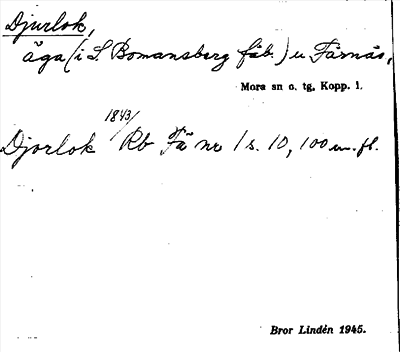 Djurlok,
äga (i S. Bomansberg fäb.) u Färnäs,
Mora sn o. tg. Kopp. l.
1843/
Djorlok Rb Fä nr 1 s. 10, 100 m. fl.
Bror Lindén 1945.